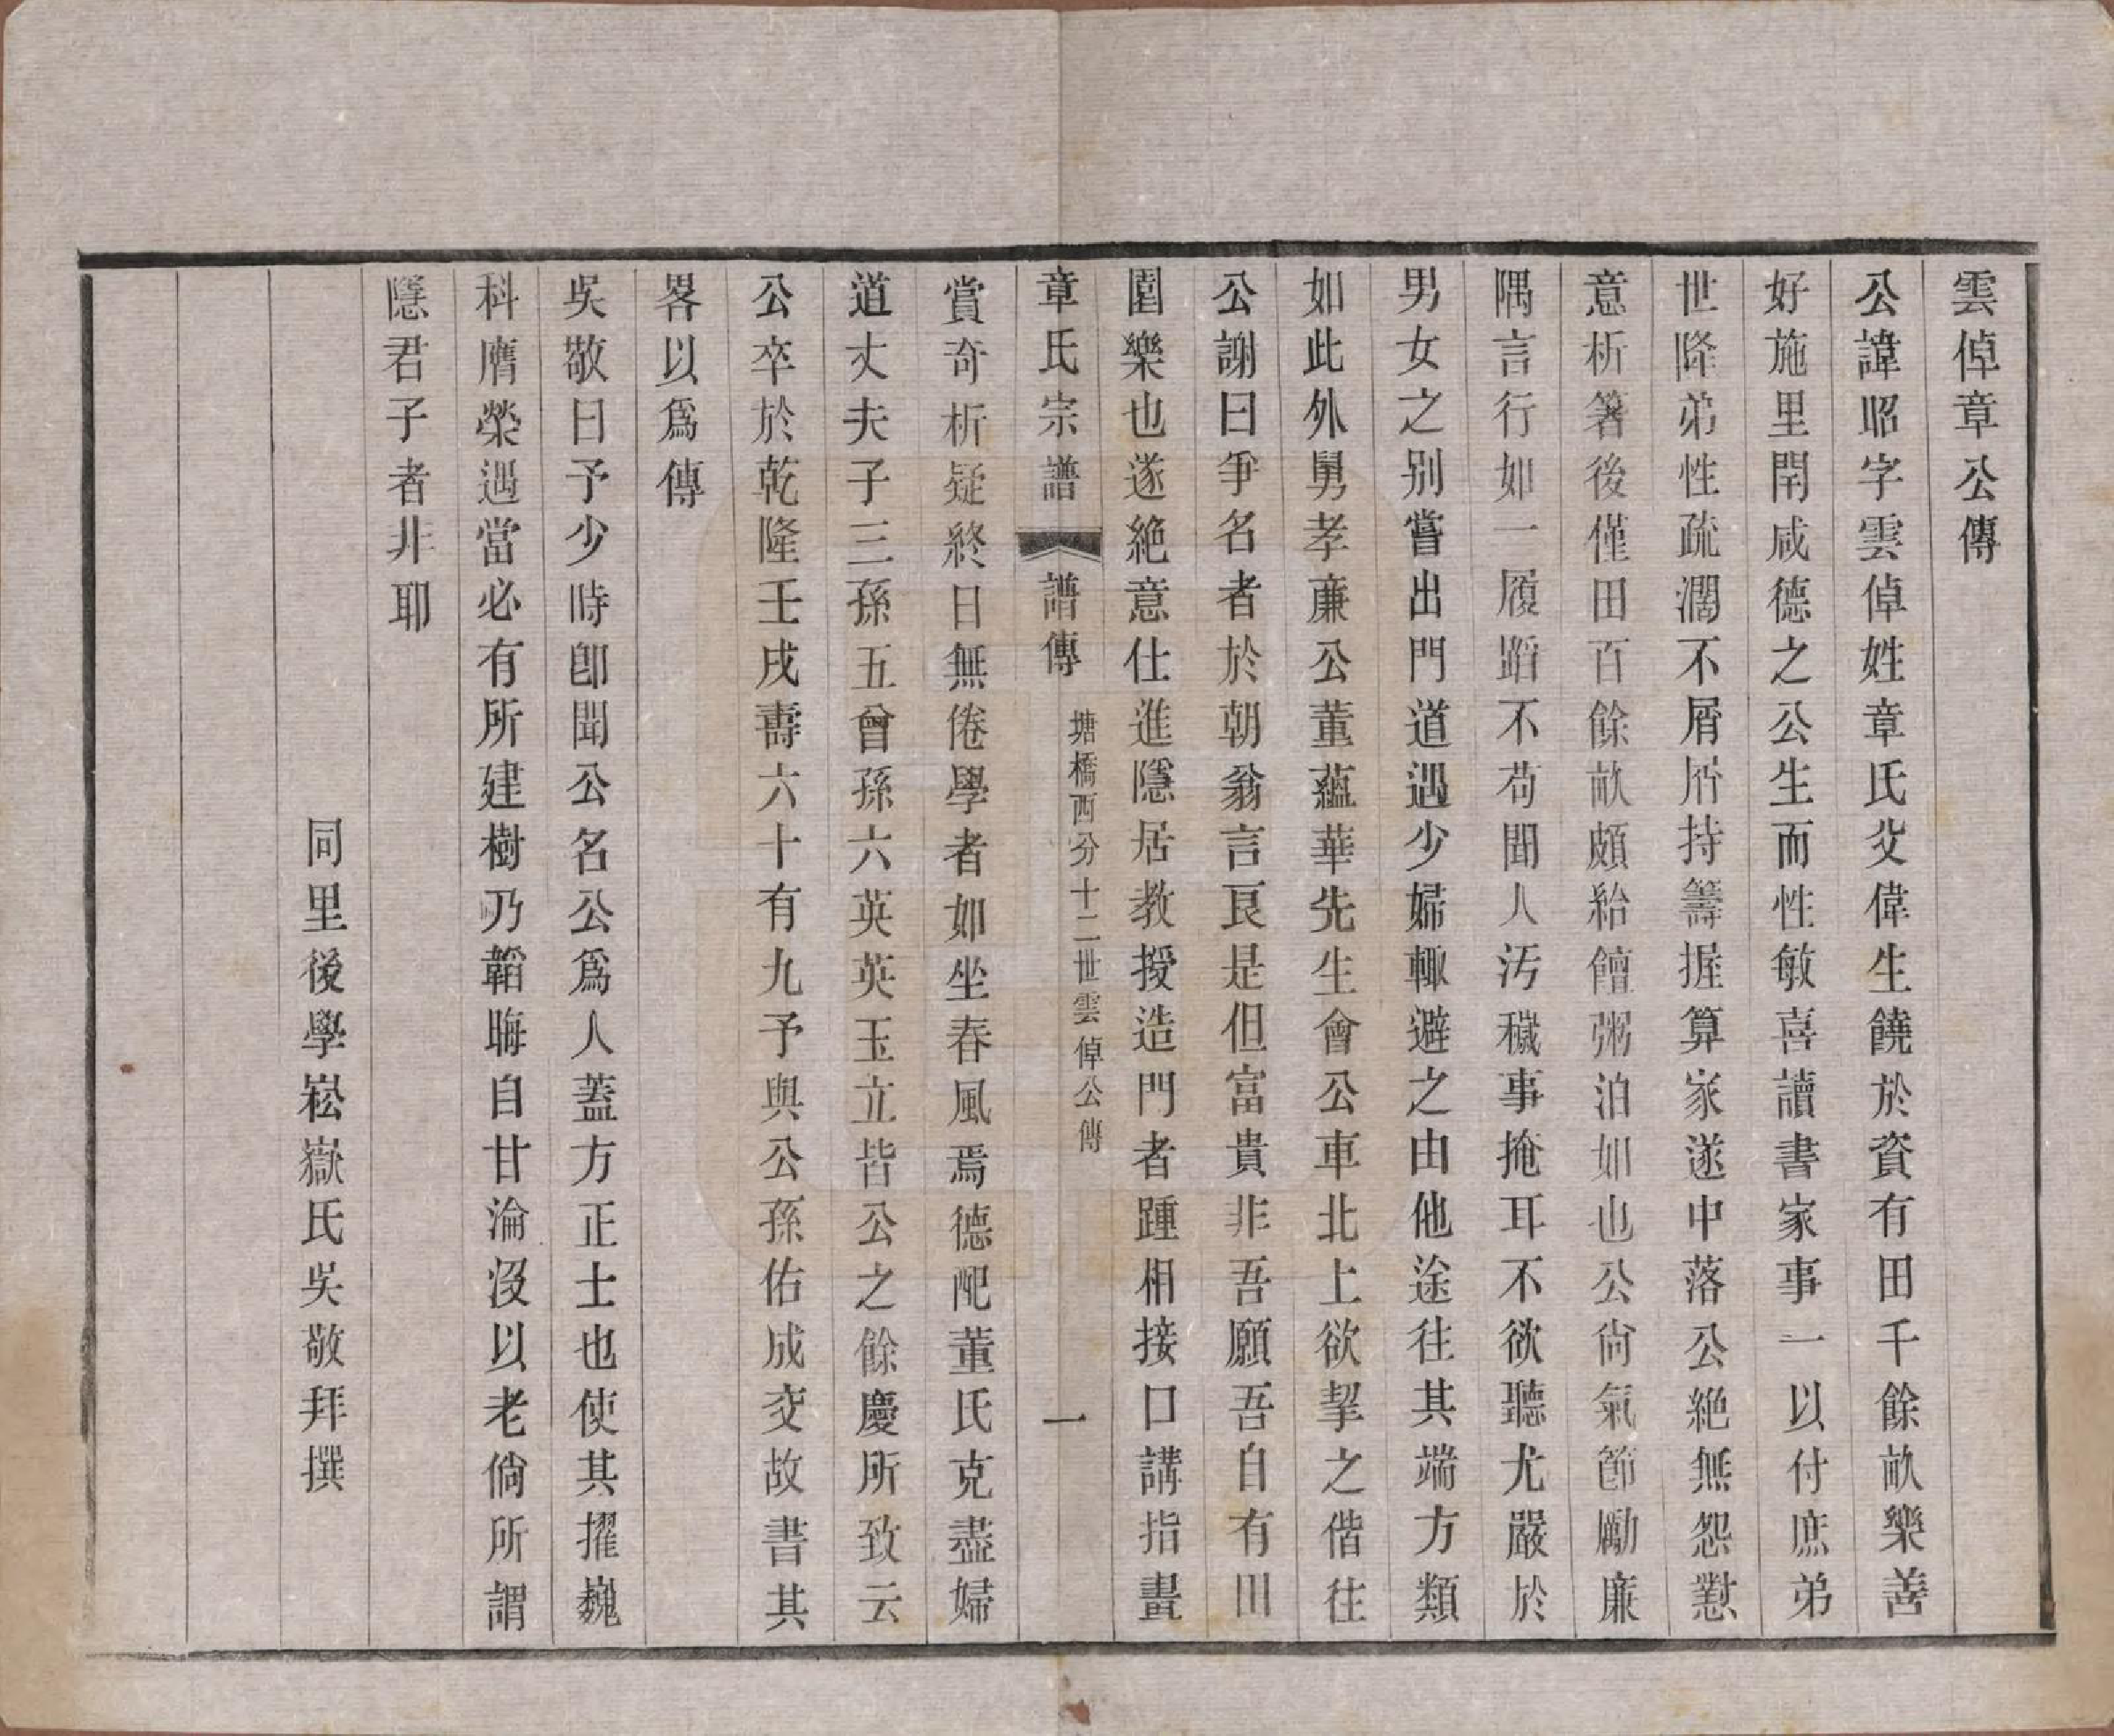 雲倬章公傳
公諱昭字雲倬姓章氏父偉生饒於資有田千餘畝樂善
好施里閈咸德之公生而性敏喜讀書家事一以付庶弟
世隆弟性疏濶不屑屑持籌握算家遂中落公絶無怨懟
意析箸後僅田百餘畝頗給饘粥泊如也公尙氣節勵廉
隅言行如一履蹈不苟聞人汚穢事掩耳不欲聽尤嚴於
男女之别嘗出門道遇少婦輙避之由他途往其端方類
如此外舅孝廉公董蘊華先生會公車北上欲挈之偕往
公謝曰爭名者於朝翁言良是但富貴非吾願吾自有田
園樂也遂絶意仕進隱居教授造門者踵相接口講指畫
章氏宗譜 譜傳 塘橋西分十二世雲倬公傳 一
賞奇析疑終日無倦學者如坐春風焉德配董氏克盡婦
道丈夫子三孫五曾孫六英英玉立皆公之餘慶所致云
公卒於乾隆壬戌壽六十有九予與公孫佑成交故書其
畧以爲傳
吳敬曰予少時卽聞公名公爲人蓋方正士也使其擢巍
科膺榮遇當必有所建樹乃韜晦自甘淪沒以老倘所謂
隱君子者非耶
同里後學崧嶽氏吳敬拜撰